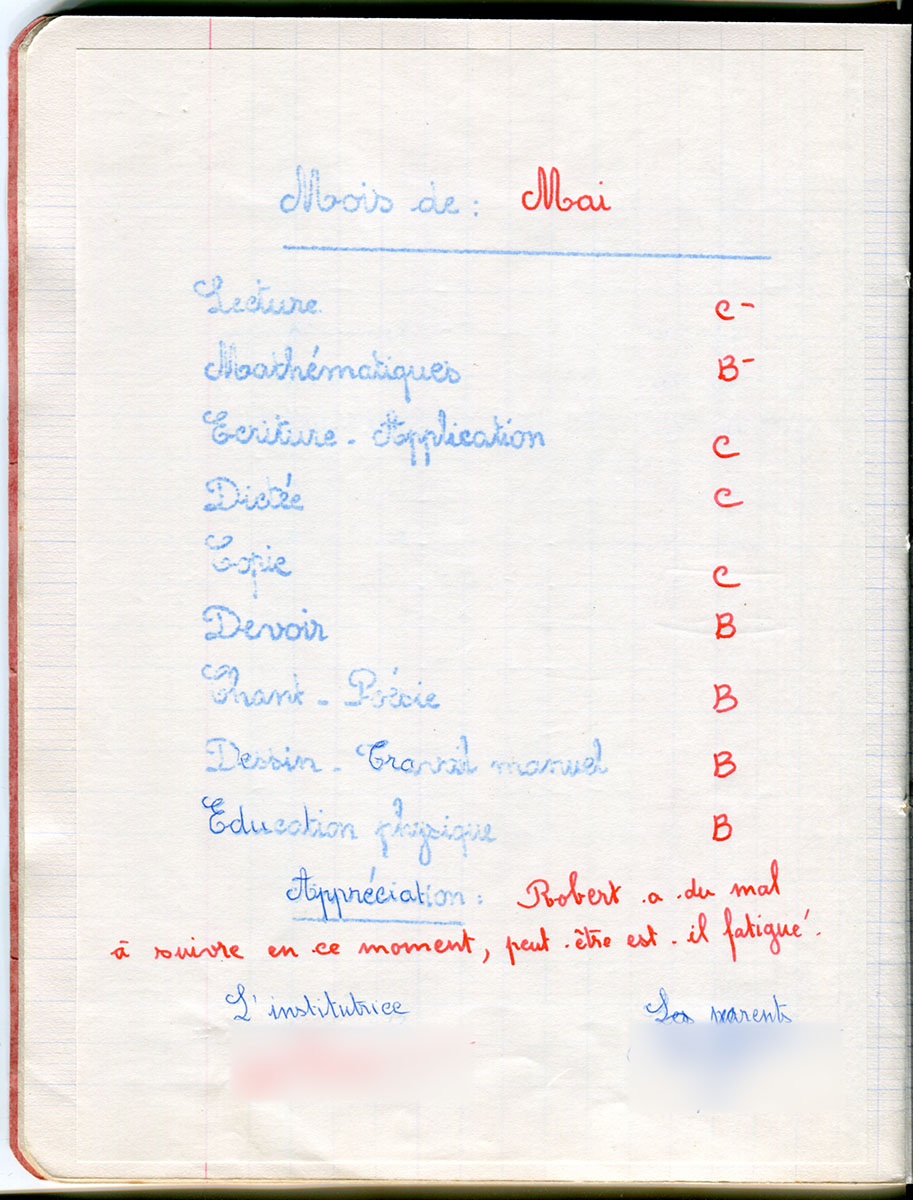 Mois de : Mai
Lecture C-
Mathématiques B-
Ecriture - Application C
Dictée C
Copie C
Devoir B
Chant - Poésie B
Dessin - Travail manuel B
Education physique B
Appréciation : Robert a du mal
à suivre en ce moment, peut-être est-il fatigué.
L'institutrice Les parents